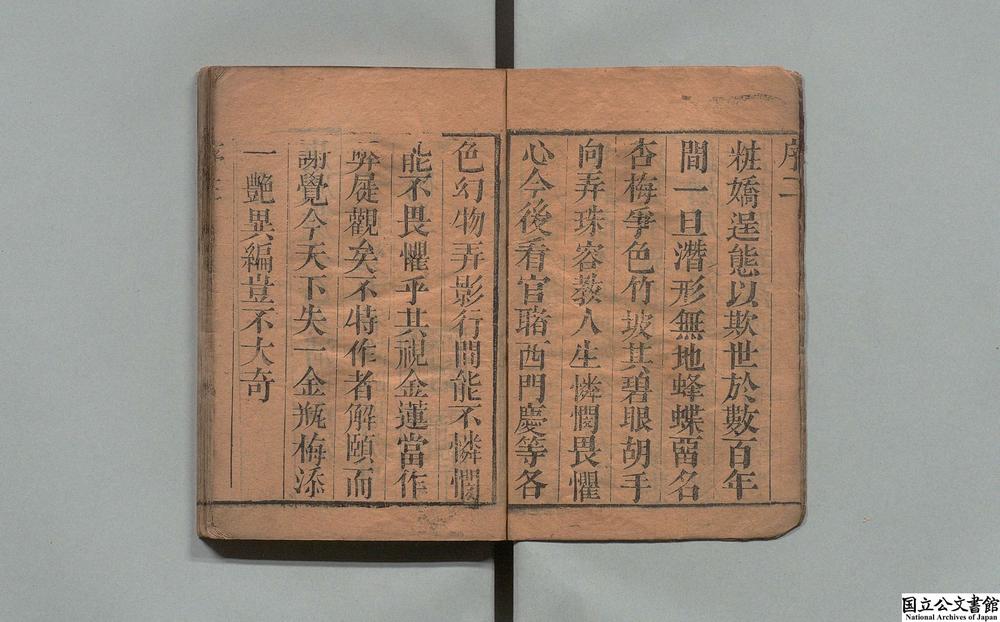 序二
粧嬌逞態以欺世於數百年
間一旦潛形無地蜂蝶畱名
杏梅爭色竹坡其碧眼胡乎
向弄珠客教人生憐憫畏懼
心今後看官睹西門慶等各
色幻物弄影行間能不憐憫
能不畏懼乎其視金蓮當作
弊屣觀矣不特作者解頤而
謝覺今天下失一金瓶梅添
一艷異編豈不大奇
国立公文書館
National Archives of Japan